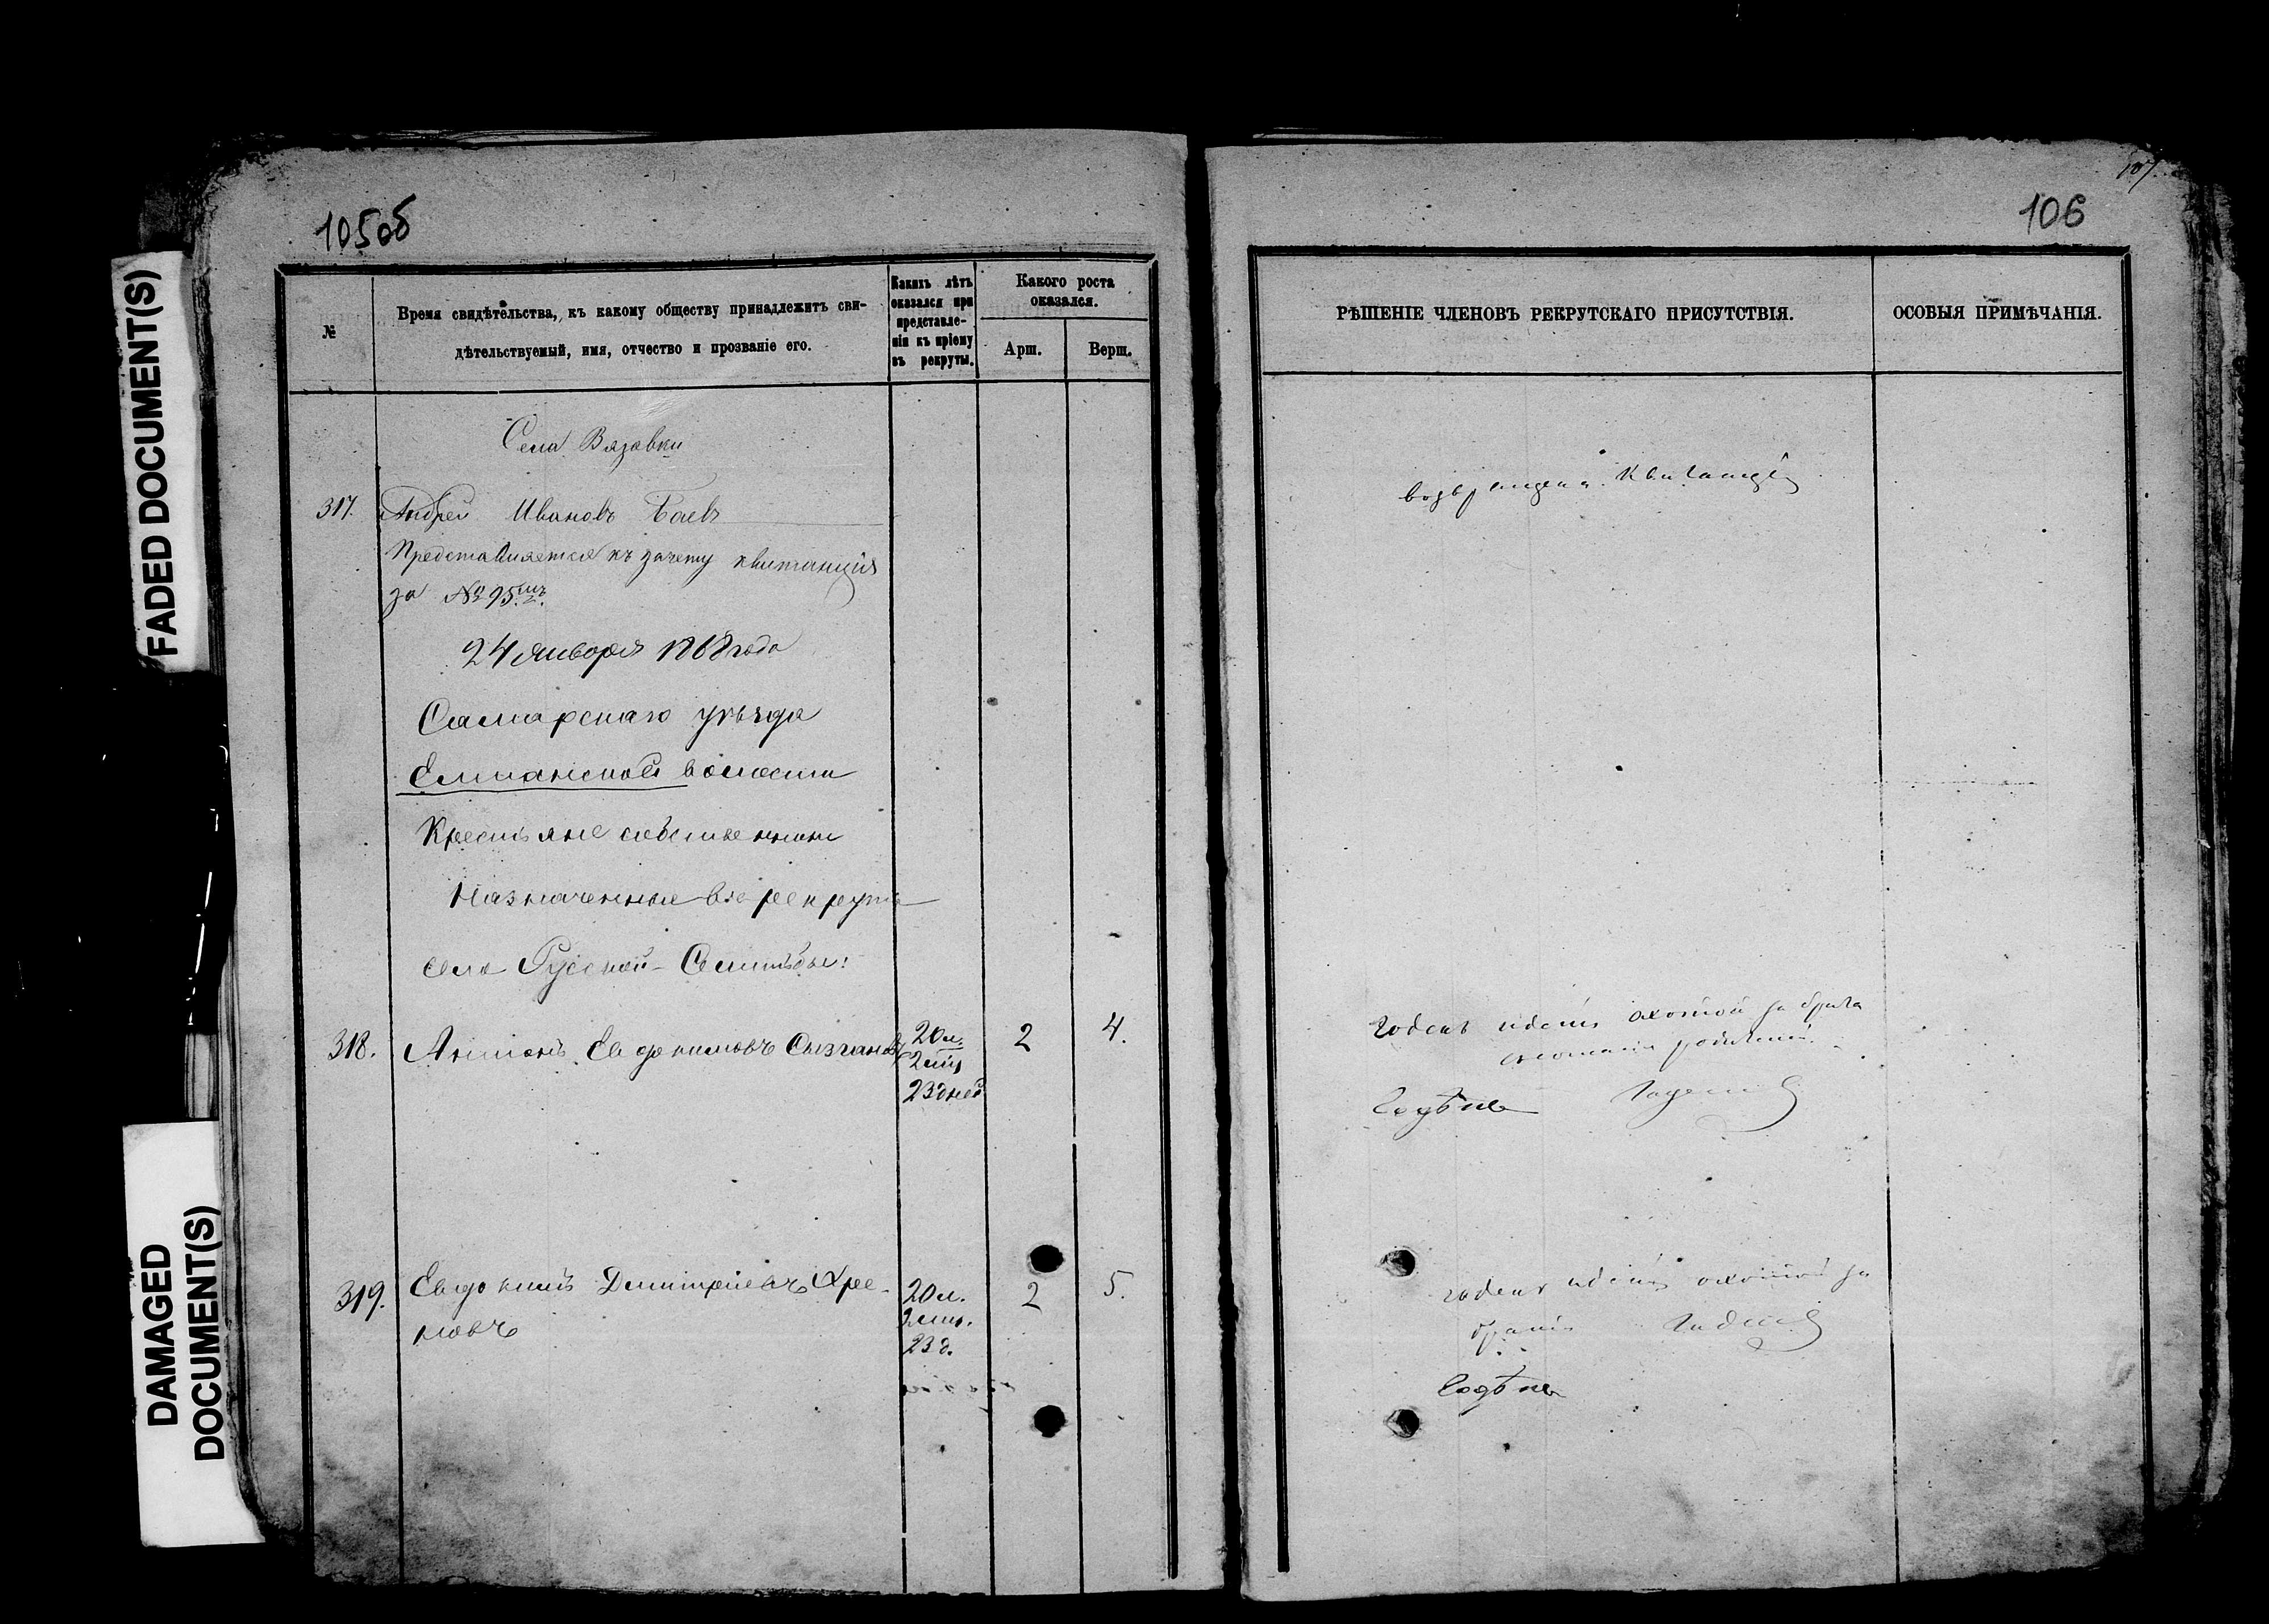 FADED DOCUMENT(S)
DAMAGED
DOCUMENT(S)
105об
№
Время свидѣтельства, къ какому обществу принадлежитъ сви-
дѣтельствуемый, имя, отчество и прозваніе его.
Какихъ лѣтъ
оказался при
представле-
ніи къ пріему
въ рекруты.
Какого роста
оказался.
Арш.
Верш.
Села Вязовки
317. Андрей Ивановъ Баевъ
Представляется къ зачету квитанція
за № 95
24 Января 1868 года
Самарскаго уѣзда
Елшанской волости
Крестьяне собственники
Назначенные въ рекруты
села Русской-Селитьбы:
318. Антонъ Евдокимовъ Сызгановъ 20 л. 2 4.
2 мѣс
23 дней
319. Евдокимъ Димитріевъ Хре- 20 л. 2 5.
новъ
23 д.
107
106
РѢШЕНІЕ ЧЛЕНОВЪ РЕКРУТСКАГО ПРИСУТСТВІЯ.
ОСОБЫЯ ПРИМѢЧАНІЯ.
возвращена квитанція
годенъ идетъ охотой за брата
годенъ идетъ охотой за